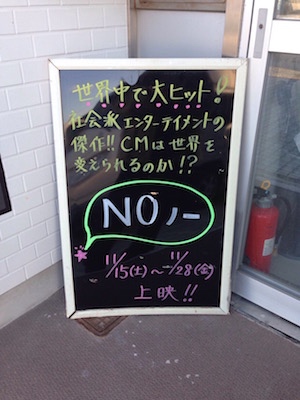 世界中で大ヒット!
社会派エンターテイメントの
傑作!! CMは世界を
変えられるのか!?
NO ノー
11/15(土)〜11/28(金)
上映!!